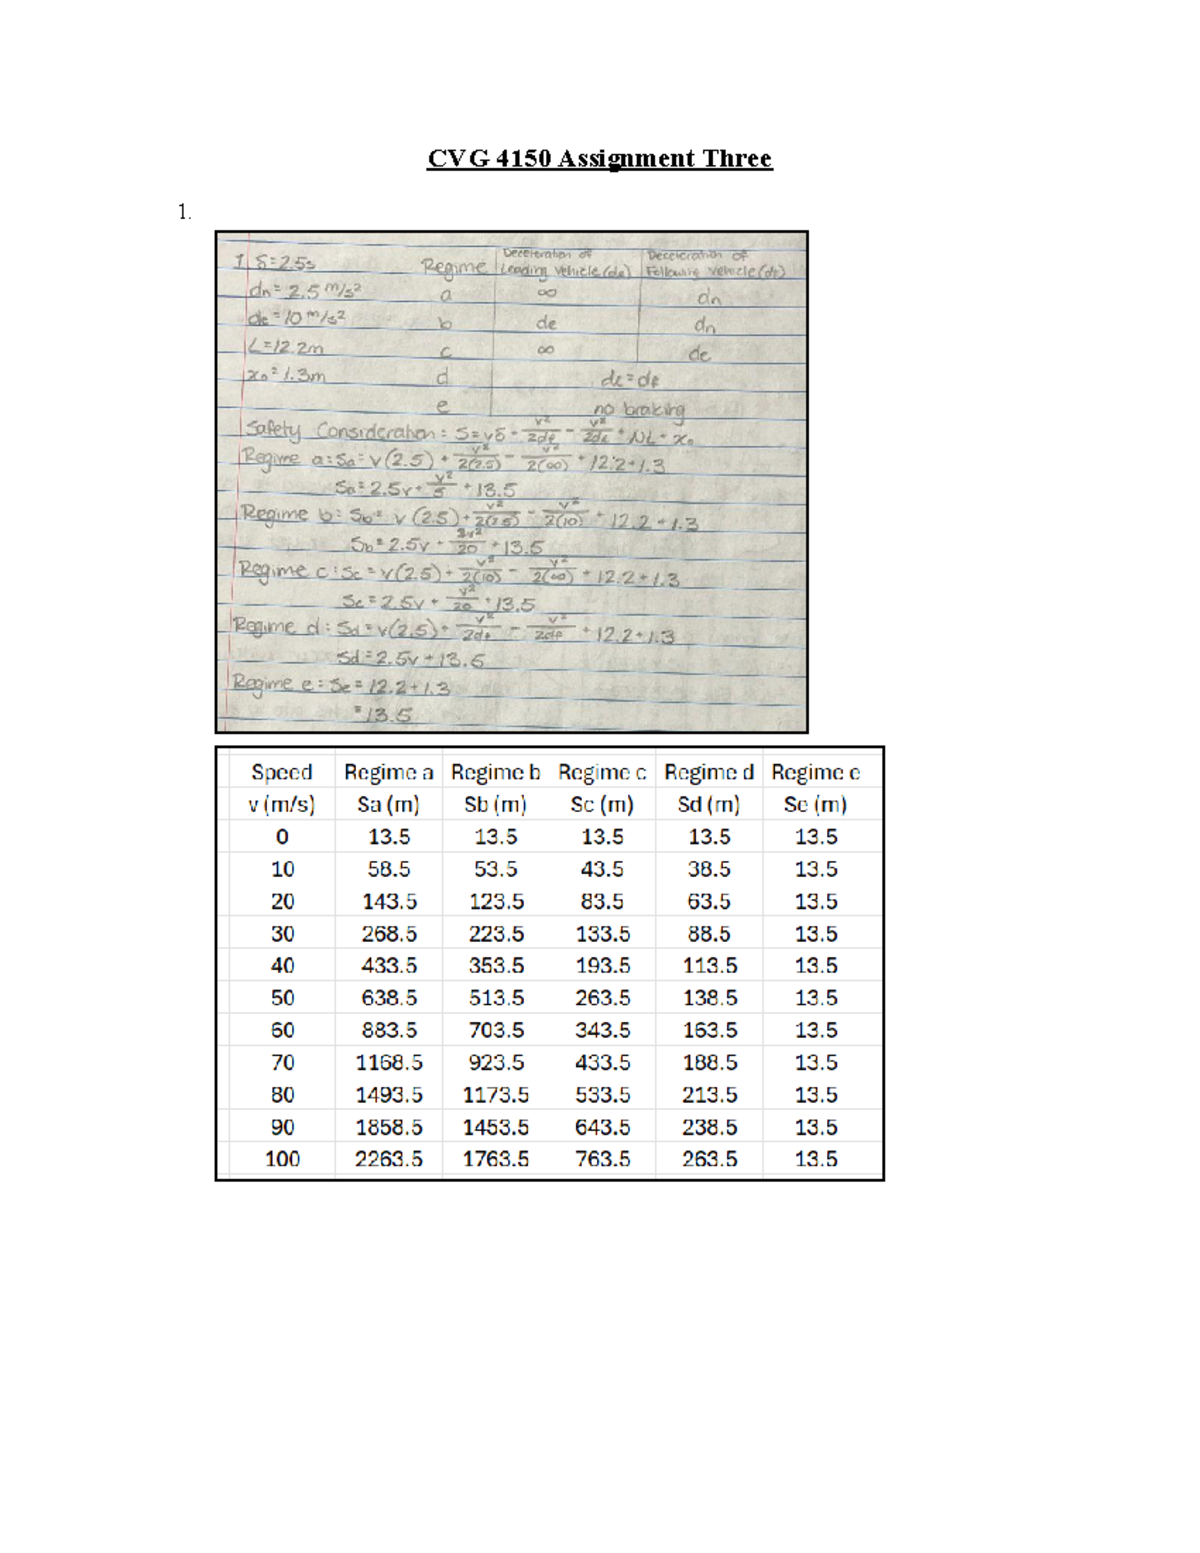 CVG 4150 Assignment Three
1.
1. δ=2.5s
Regime | Deceleration of Leading Vehicle (dℓ) | Deceleration of Following Vehicle (df)
dn = 2.5 m/s²
a ∞ dn
de = 10 m/s²
b de dn
L=12.2m
c ∞ de
x₀ = 1.3m
d dℓ=df
e no braking
Safety Consideration: S = vδ + v²/2df - v²/2dℓ + NL + x₀
Regime a: Sa = v(2.5) + v²/2(2.5) - v²/2(∞) + 12.2+1.3
Sa = 2.5v + v²/5 + 13.5
Regime b: Sb = v(2.5) + v²/2(2.5) - v²/2(10) + 12.2+1.3
Sb = 2.5v + 3v²/20 + 13.5
Regime c: Sc = v(2.5) + v²/2(10) - v²/2(∞) + 12.2+1.3
Sc = 2.5v + v²/20 + 13.5
Regime d: Sd = v(2.5) + v²/2df - v²/2df + 12.2+1.3
Sd = 2.5v + 13.5
Regime e: Se = 12.2+1.3
= 13.5
Speed Regime a Regime b Regime c Regime d Regime e
v (m/s) Sa (m) Sb (m) Sc (m) Sd (m) Se (m)
0 13.5 13.5 13.5 13.5 13.5
10 58.5 53.5 43.5 38.5 13.5
20 143.5 123.5 83.5 63.5 13.5
30 268.5 223.5 133.5 88.5 13.5
40 433.5 353.5 193.5 113.5 13.5
50 638.5 513.5 263.5 138.5 13.5
60 883.5 703.5 343.5 163.5 13.5
70 1168.5 923.5 433.5 188.5 13.5
80 1493.5 1173.5 533.5 213.5 13.5
90 1858.5 1453.5 643.5 238.5 13.5
100 2263.5 1763.5 763.5 263.5 13.5